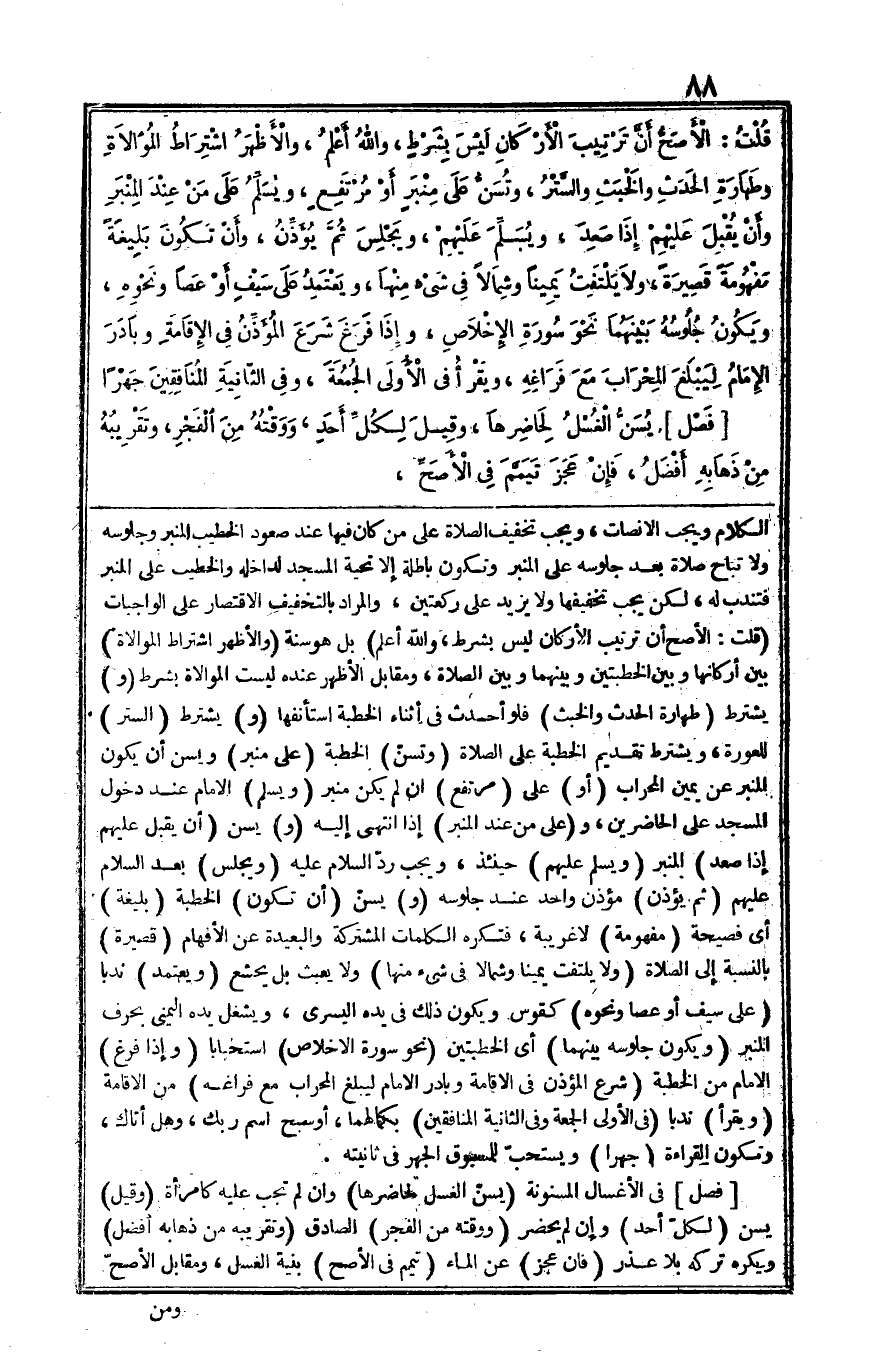 ٨٨
قُلْتُ : الْأَصَحُّ أَنَّ تَرْتِيبَ الْأَرْكَانِ لَيْسَ بِشَرْطٍ ، وَاللهُ أَعْلَمُ ، وَالْأَظْهَرُ اشْتِرَاطُ المُوَالاَةِ
وطَهَارَةِ الحَدَثِ والْخَبَثِ والسَّتْرُ ، وتُسَنُّ عَلَى مِنْبَرٍ أَوْ مُرْتَفِعٍ ، ويُسَلِّمُ عَلَى مَنْ عِنْدَ المِنْبَرِ
وأَنْ يُقْبِلَ عَلَيْهِمْ إِذَا صَعِدَ ، ويُسَلِّمَ عَلَيْهِمْ ، ويَجْلِسَ ثُمَّ يُؤَذَّنُ ، وأَنْ تَكُونَ بَلِيغَةً
مَفْهُومَةً قَصِيرَةً ، ولاَ يَلْتَفِتُ يَمِيناً وشِمَالاً فِي شَىْءٍ مِنْهَا ، ويَعْتَمِدُ عَلَى سَيْفٍ أَوْ عَصَا ونَحْوِهِ ،
ويَكُونُ جُلُوسُهُ بَيْنَهُمَا نَحْوَ سُورَةِ الإِخْلاَصِ ، وإِذَا فَرَغَ شَرَعَ المُؤَذِّنُ فِي الإِقَامَةِ وبَادَرَ
الإِمَامُ لِيَبْلُغَ المِحْرَابَ مَعَ فَرَاغِهِ ، ويَقْرَأُ فِى الْأُولَى الجُمُعَةَ ، وفِى الثَّانِيَةِ المُنَافِقِينَ جَهْرًا
[ فَصْل ] يُسَنُّ الْغُسْلُ لِحَاضِرِهَا ، وقِيلَ لِكُلِّ أَحَدٍ ، وَوَقْتُهُ مِنَ الْفَجْرِ ، وتَقْرِيبُهُ
مِنْ ذَهَابِهِ أَفْضَلُ ، فَإِنْ عَجَزَ تَيَمَّمَ فِى الْأَصَحِّ ،
الكلام ويجب الانصات ، ويجب تخفيف الصلاة على من كان فيها عند صعود الخطيب المنبر وجلوسه
ولا تباح صلاة بعد جلوسه على المنبر وتكون باطلة إلا تحية المسجد لداخله والخطيب على المنبر
فتندب له ، لكن يجب تخفيفها ولا يزيد على ركعتين ، والمراد بالتخفيف الاقتصار على الواجبات
(قلت : الأصح أن ترتيب الأركان ليس بشرط ، والله أعلم) بل هو سنة (والأظهر اشتراط الموالاة)
بين أركانها وبين الخطبتين وبينهما وبين الصلاة ، ومقابل الأظهر عنده ليست الموالاة بشرط (و)
يشترط ( طهارة الحدث والخبث ) فلو أحدث فى أثناء الخطبة استأنفها (و) يشترط ( الستر )
للعورة ، ويشترط تقديم الخطبة على الصلاة (وتسنّ) الخطبة (على منبر) ويسن أن يكون
المنبر عن يمين المحراب (أو) على (مرتفع) ان لم يكن منبر (ويسلم) الامام عند دخول
المسجد على الحاضرين ، و(على من عند المنبر) إذا انتهى إليه (و) يسن (أن يقبل عليهم
إذا صعد) المنبر (ويسلم عليهم) حينئذ ، ويجب ردّ السلام عليه (ويجلس) بعد السلام
عليهم (ثم يؤذن) مؤذن واحد عند جلوسه (و) يسنّ (أن تكون) الخطبة (بليغة)
أى فصيحة (مفهومة) لاغريبة ، فتكره الكلمات المشتركة والبعيدة عن الأفهام (قصيرة)
بالنسبة إلى الصلاة (ولا يلتفت يمينا وشمالا فى شىء منها) ولا يعبث بل يخشع (ويعتمد) ندبا
(على سيف أو عصا ونحوه) كقوس ويكون ذلك فى يده اليسرى ، ويشغل يده اليمنى بحرف
المنبر (ويكون جلوسه بينهما) أى الخطبتين (نحو سورة الاخلاص) استحبابا (وإذا فرغ)
الامام من الخطبة (شرع المؤذن فى الاقامة وبادر الامام ليبلغ المحراب مع فراغه) من الاقامة
(ويقرأ) ندبا (فى الأولى الجمعة وفى الثانية المنافقين) بكمالهما ، أوسبح اسم ربك ، وهل أتاك ،
وتكون القراءة (جهرا) ويستحبّ للمسبوق الجهر فى ثانيته .
[ فصل ] فى الأغسال المسنونة (يسنّ الغسل لحاضرها) وان لم تجب عليه كامرأة (وقيل)
يسن (لكلّ أحد) وإن لم يحضر (ووقته من الفجر) الصادق (وتقريبه من ذهابه أفضل)
ويكره تركه بلا عذر (فان عجز) عن الماء (تيمم فى الأصح) بنية الغسل ، ومقابل الأصحّ
ومن